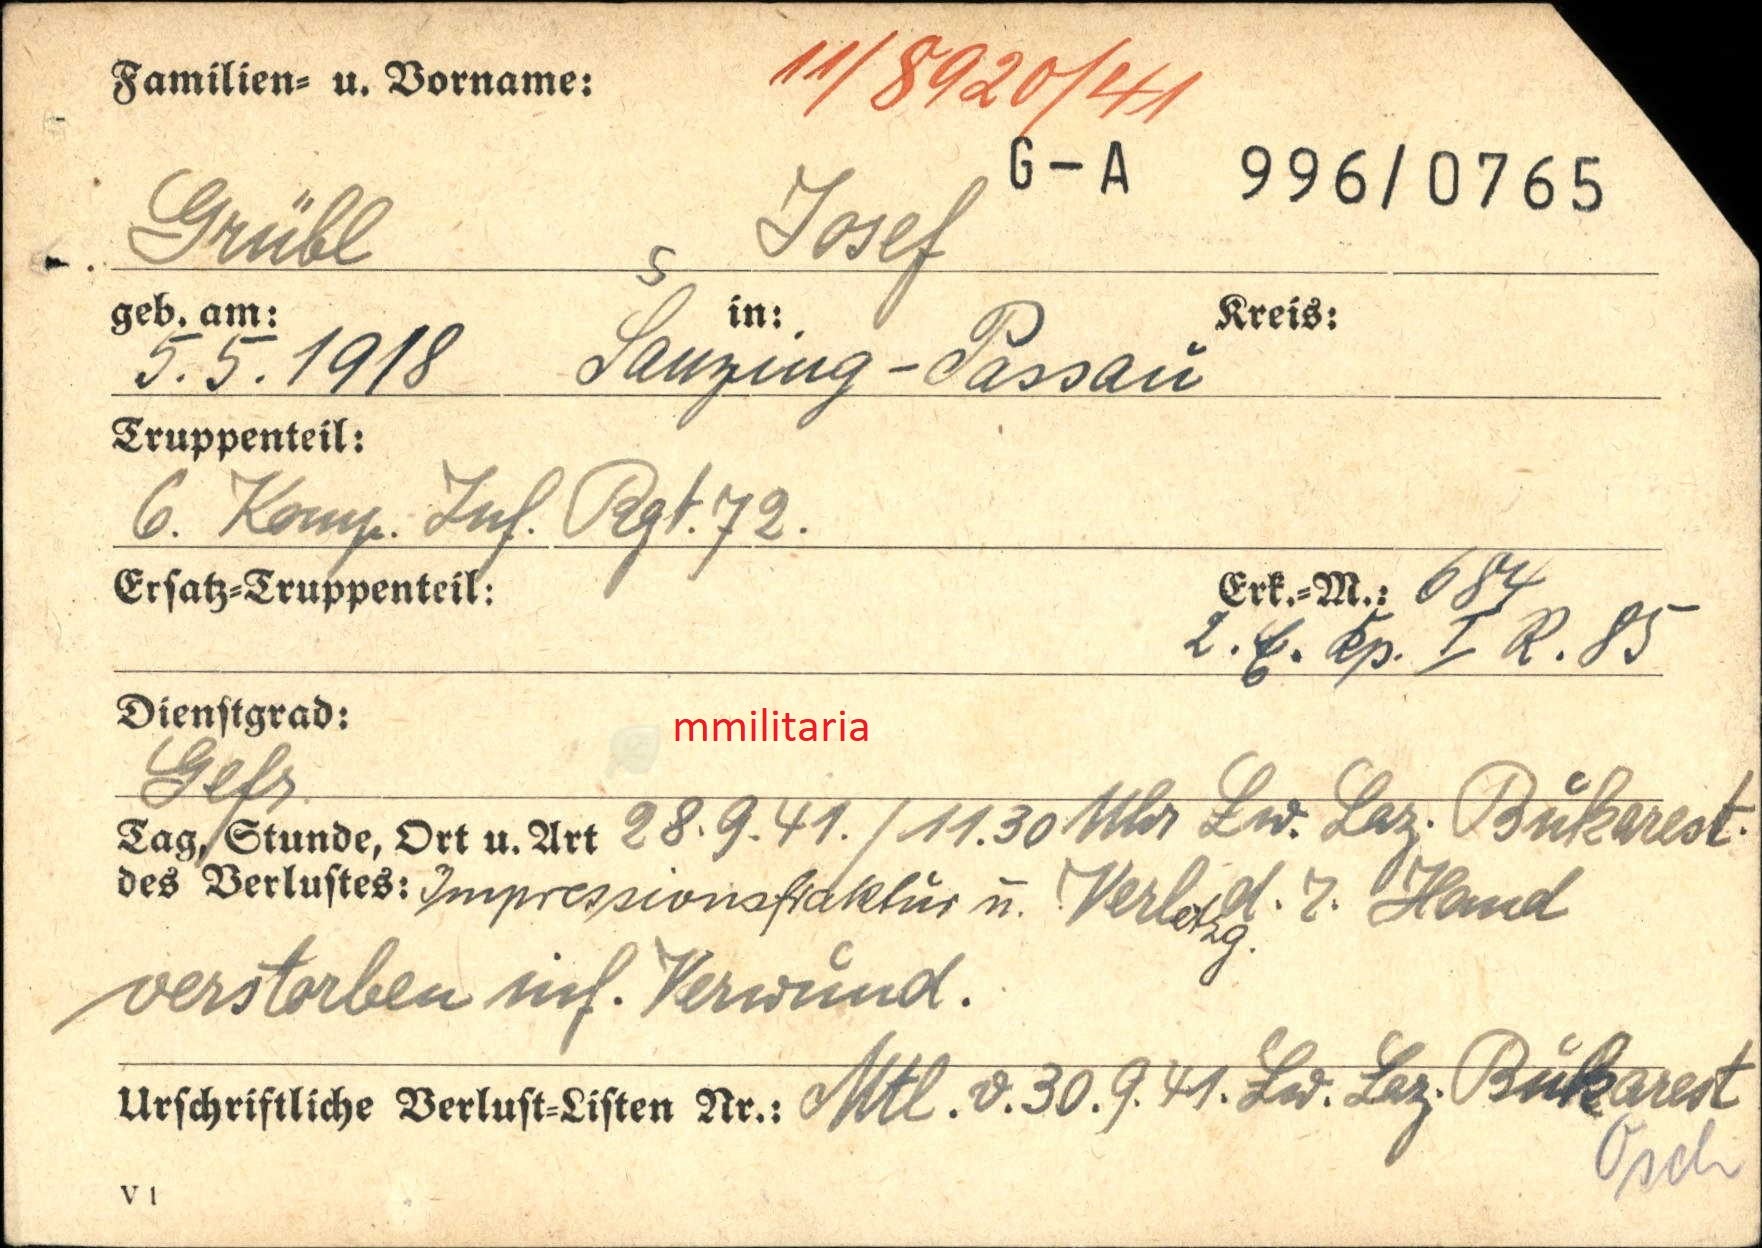 Familien- u. Vorname: 11/8920/41
G-A 996/0765
Grübl Josef
geb. am: in: Kreis:
5.5.1918 Sanzing-Passau
Truppenteil:
6. Komp. Inf. Rgt. 72.
Ersatz-Truppenteil: Erk.-M.: 684
2. E. Kp. I R. 85
Dienstgrad:
mmilitaria
Gefr.
Tag, Stunde, Ort u. Art 28.9.41. / 11.30 Uhr Lw. Laz. Bukarest.
des Verlustes: Impressionsfraktur u. Verletzg. d. r. Hand
verstorben inf. Verwund.
Urschriftliche Verlust-Listen Nr.: Mtl. v. 30.9.41. Lw. Laz. Bukarest
V 1